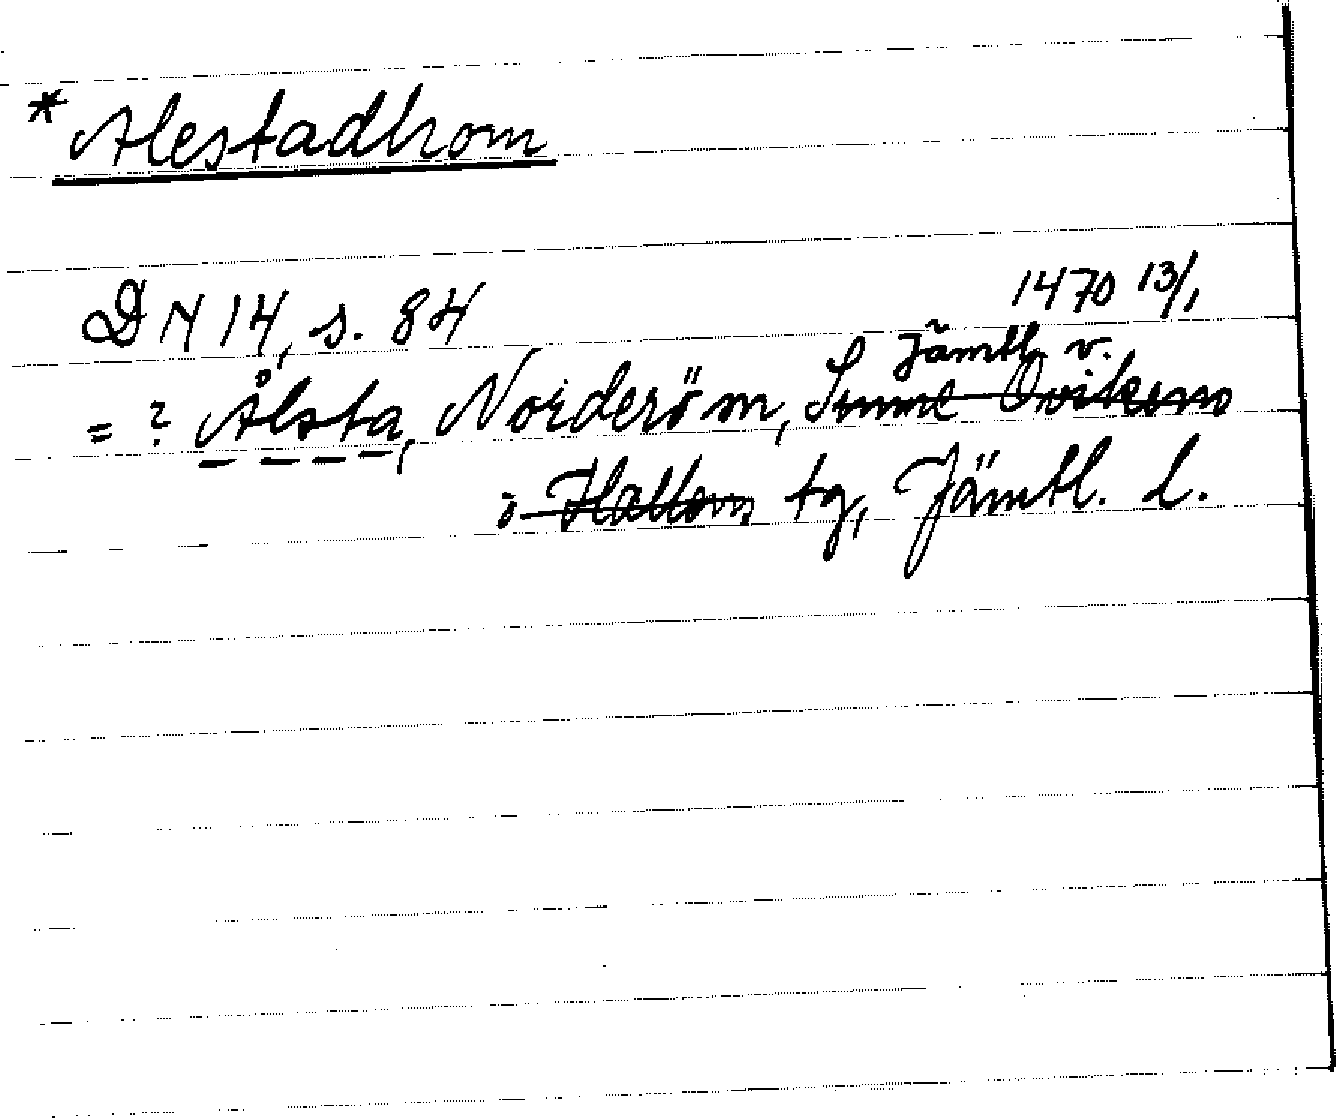 *Alestadhom
DN 14, s. 84 1470 13/1
Jämtl. v.
= ? Ålsta, Norderöm, Sunne Ovikens
o Hallens tg, Jämtl. l.